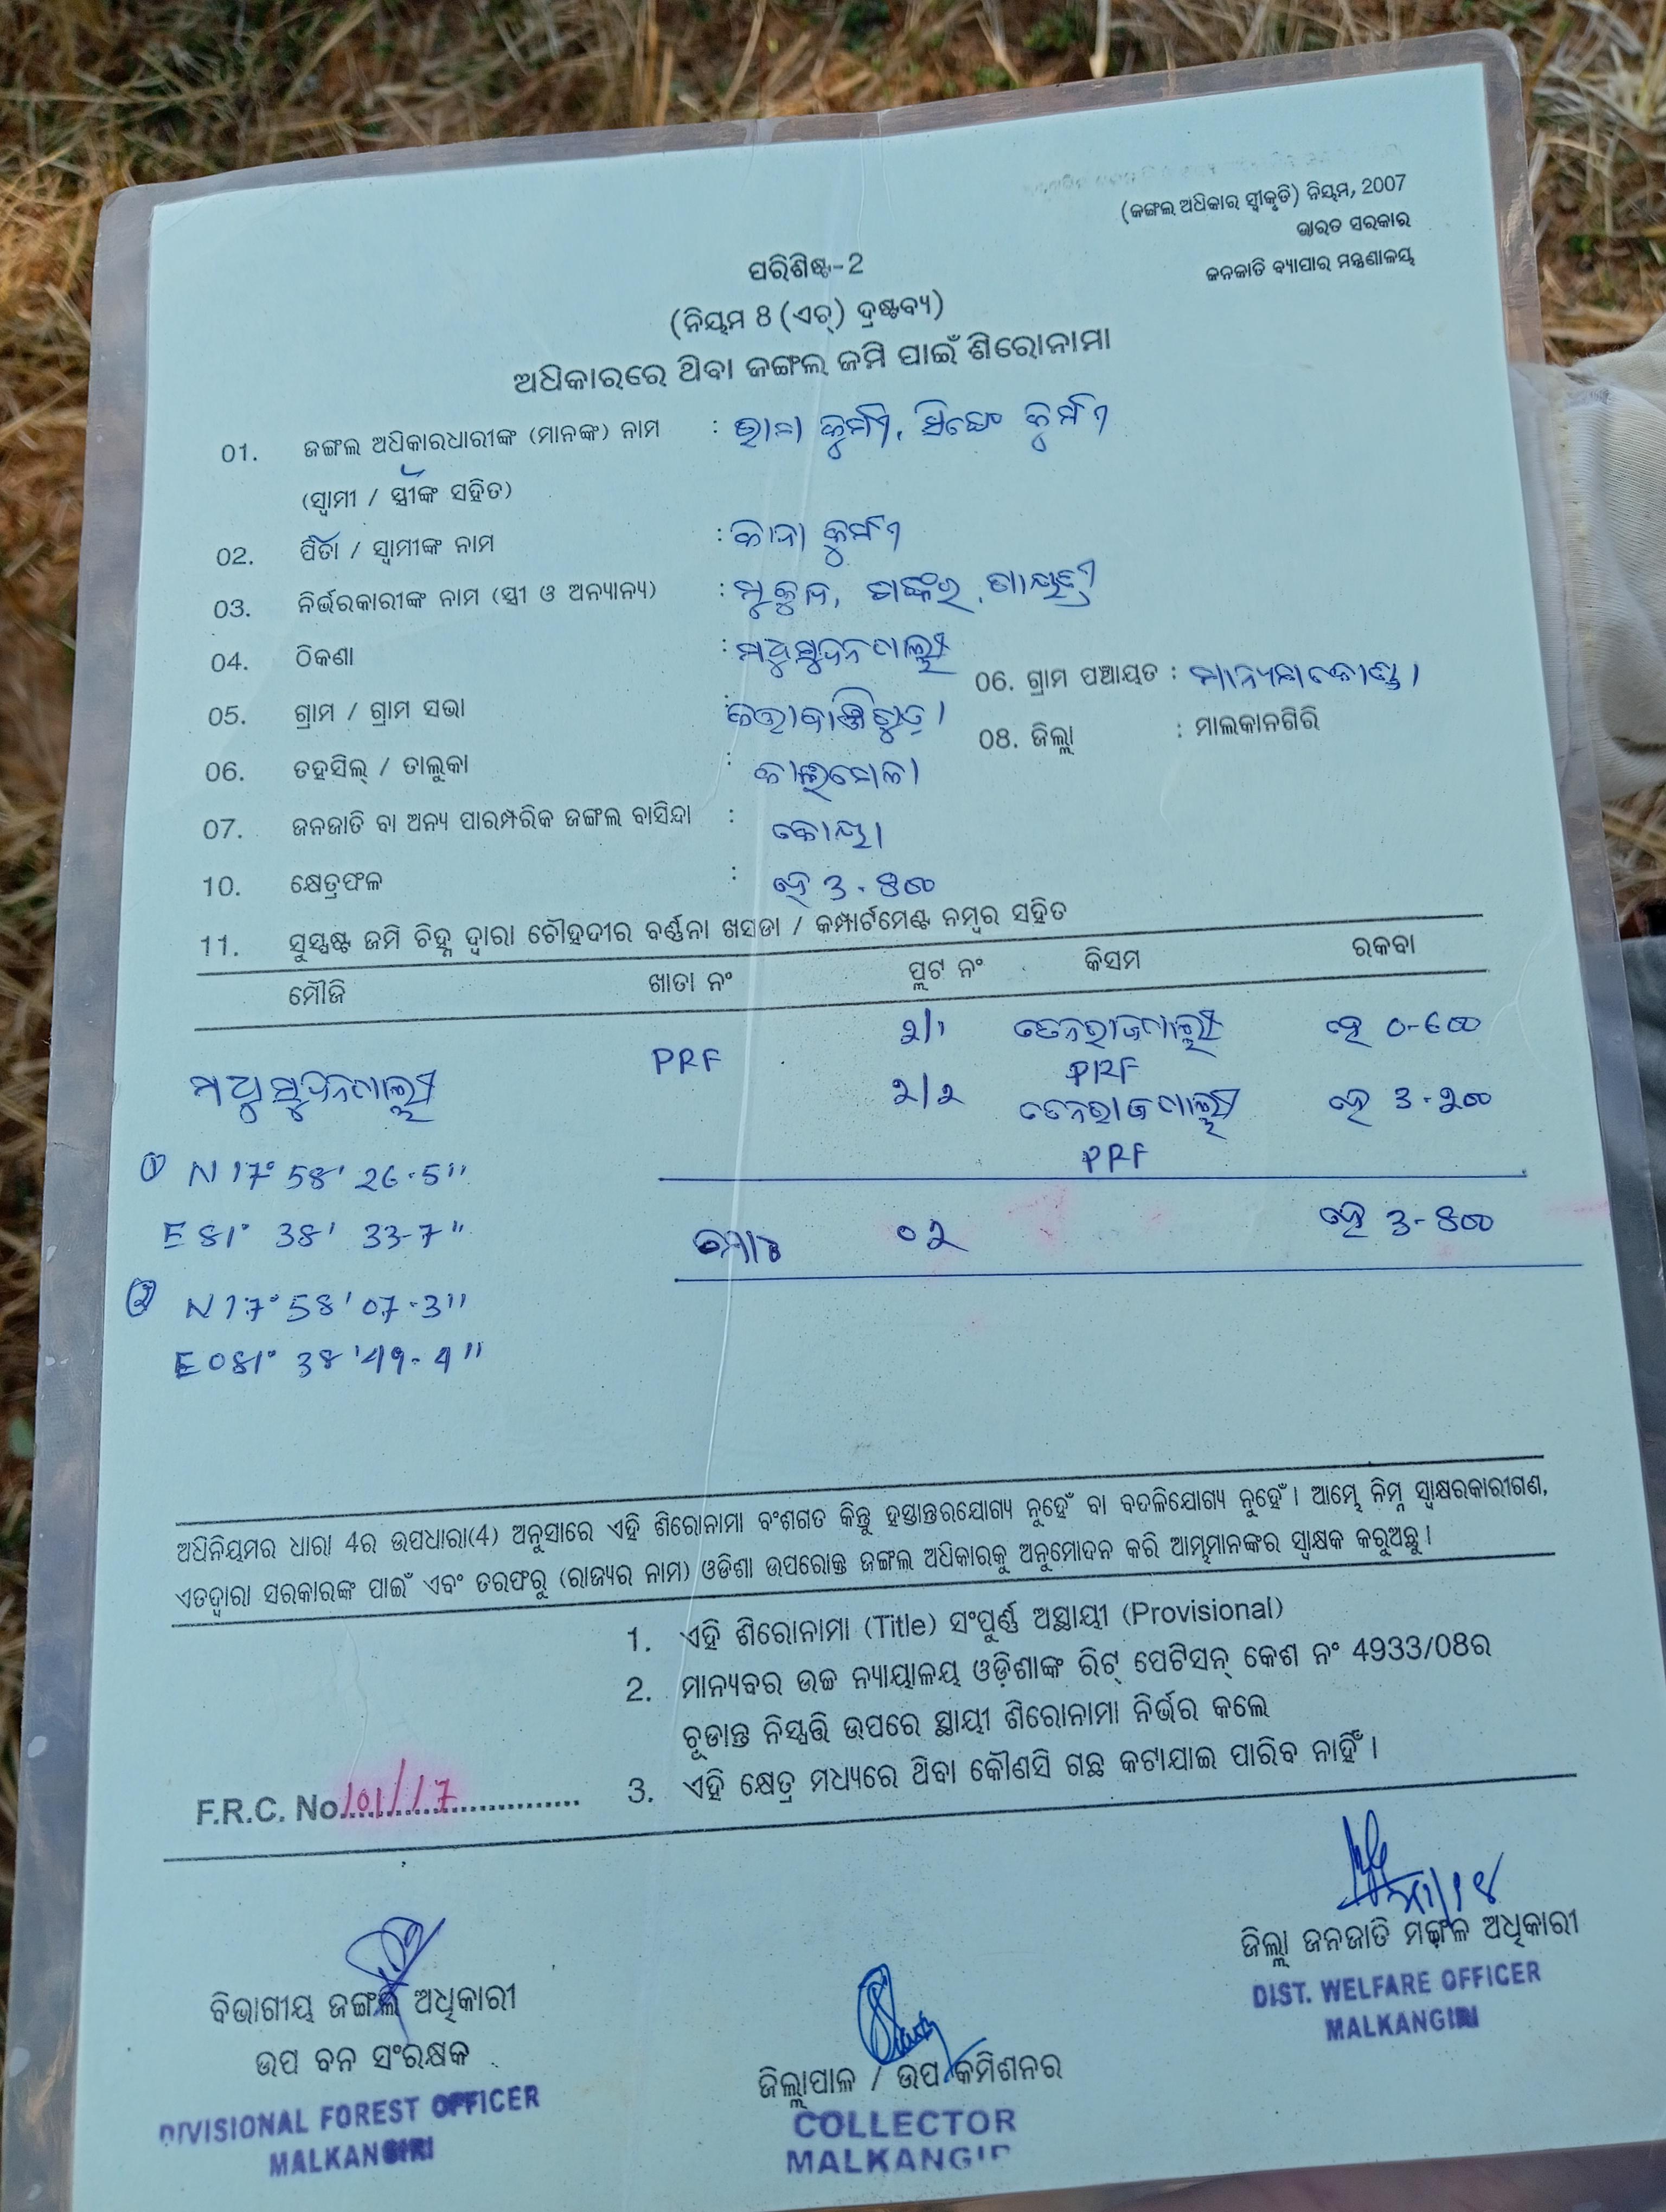 (ଜଙ୍ଗଲ ଅଧିକାର ସ୍ୱୀକୃତି) ନିୟମ, 2007
ଭାରତ ସରକାର
ଜନଜାତି ବ୍ୟାପାର ମନ୍ତ୍ରଣାଳୟ
ପରିଶିଷ୍ଟ-2
(ନିୟମ 8 (ଏଚ୍) ଦ୍ରଷ୍ଟବ୍ୟ)
ଅଧିକାରରେ ଥିବା ଜଙ୍ଗଲ ଜମି ପାଇଁ ଶିରୋନାମା
01. ଜଙ୍ଗଲ ଅଧିକାରଧାରୀଙ୍କ (ମାନଙ୍କ) ନାମ :
(ସ୍ୱାମୀ / ସ୍ତ୍ରୀଙ୍କ ସହିତ)
02. ପିତା / ସ୍ୱାମୀଙ୍କ ନାମ :
03. ନିର୍ଭରକାରୀଙ୍କ ନାମ (ସ୍ତ୍ରୀ ଓ ଅନ୍ୟାନ୍ୟ) : ମୁକୁନ୍ଦ, ଶଙ୍କର, ଗାୟତ୍ରୀ
04. ଠିକଣା :
05. ଗ୍ରାମ / ଗ୍ରାମ ସଭା : 06. ଗ୍ରାମ ପଞ୍ଚାୟତ : ମାନ୍ୟମକୋଣ୍ଡା
06. ତହସିଲ୍ / ତାଲୁକା : କାଲିମେଳା 08. ଜିଲ୍ଲା : ମାଲକାନଗିରି
07. ଜନଜାତି ବା ଅନ୍ୟ ପାରମ୍ପରିକ ଜଙ୍ଗଲ ବାସିନ୍ଦା : କୋୟା
10. କ୍ଷେତ୍ରଫଳ : ହେ 3.800
11. ସୁସ୍ପଷ୍ଟ ଜମି ଚିହ୍ନ ଦ୍ୱାରା ଚୌହଦୀର ବର୍ଣ୍ଣନା ଖସଡା / କମ୍ପାର୍ଟମେଣ୍ଟ ନମ୍ବର ସହିତ
ମୌଜି ଖାତା ନଂ ପ୍ଲଟ ନଂ କିସମ ରକବା
PRF ୨/୧ ହେ 0-600
PRF
୨/୨ ହେ 3-200
PRF
① N 17° 58' 26.5"
E 81° 38' 33-7"
ମୋଟ ୦୨ ହେ 3-800
② N 17° 58' 07-3"
E 081° 38' 49-4"
ଅଧିନିୟମର ଧାରା 4ର ଉପଧାରା(4) ଅନୁସାରେ ଏହି ଶିରୋନାମା ବଂଶଗତ କିନ୍ତୁ ହସ୍ତାନ୍ତରଯୋଗ୍ୟ ନୁହେଁ ବା ବଦଳିଯୋଗ୍ୟ ନୁହେଁ । ଆମ୍ଭେ ନିମ୍ନ ସ୍ୱାକ୍ଷରକାରୀଗଣ,
ଏତଦ୍ୱାରା ସରକାରଙ୍କ ପାଇଁ ଏବଂ ତରଫରୁ (ରାଜ୍ୟର ନାମ) ଓଡିଶା ଉପରୋକ୍ତ ଜଙ୍ଗଲ ଅଧିକାରକୁ ଅନୁମୋଦନ କରି ଆମ୍ଭମାନଙ୍କର ସ୍ୱାକ୍ଷକ କରୁଅଛୁ ।
1. ଏହି ଶିରୋନାମା (Title) ସଂପୁର୍ଣ୍ଣ ଅସ୍ଥାୟୀ (Provisional)
2. ମାନ୍ୟବର ଉଚ୍ଚ ନ୍ୟାୟାଳୟ ଓଡ଼ିଶାଙ୍କ ରିଟ୍ ପେଟିସନ୍ କେଶ ନଂ 4933/08ର
ଚୂଡାନ୍ତ ନିସ୍ପତ୍ତି ଉପରେ ସ୍ଥାୟୀ ଶିରୋନାମା ନିର୍ଭର କଲେ
3. ଏହି କ୍ଷେତ୍ର ମଧ୍ୟରେ ଥିବା କୌଣସି ଗଛ କଟାଯାଇ ପାରିବ ନାହିଁ ।
F.R.C. No. 101/17
ଜିଲ୍ଲା ଜନଜାତି ମଙ୍ଗଳ ଅଧିକାରୀ
DIST. WELFARE OFFICER
MALKANGIRI
ବିଭାଗୀୟ ଜଙ୍ଗଲ ଅଧିକାରୀ
ଉପ ବନ ସଂରକ୍ଷକ
DIVISIONAL FOREST OFFICER
MALKANGIRI
ଜିଲ୍ଲାପାଳ / ଉପ କମିଶନର
COLLECTOR
MALKANGIR